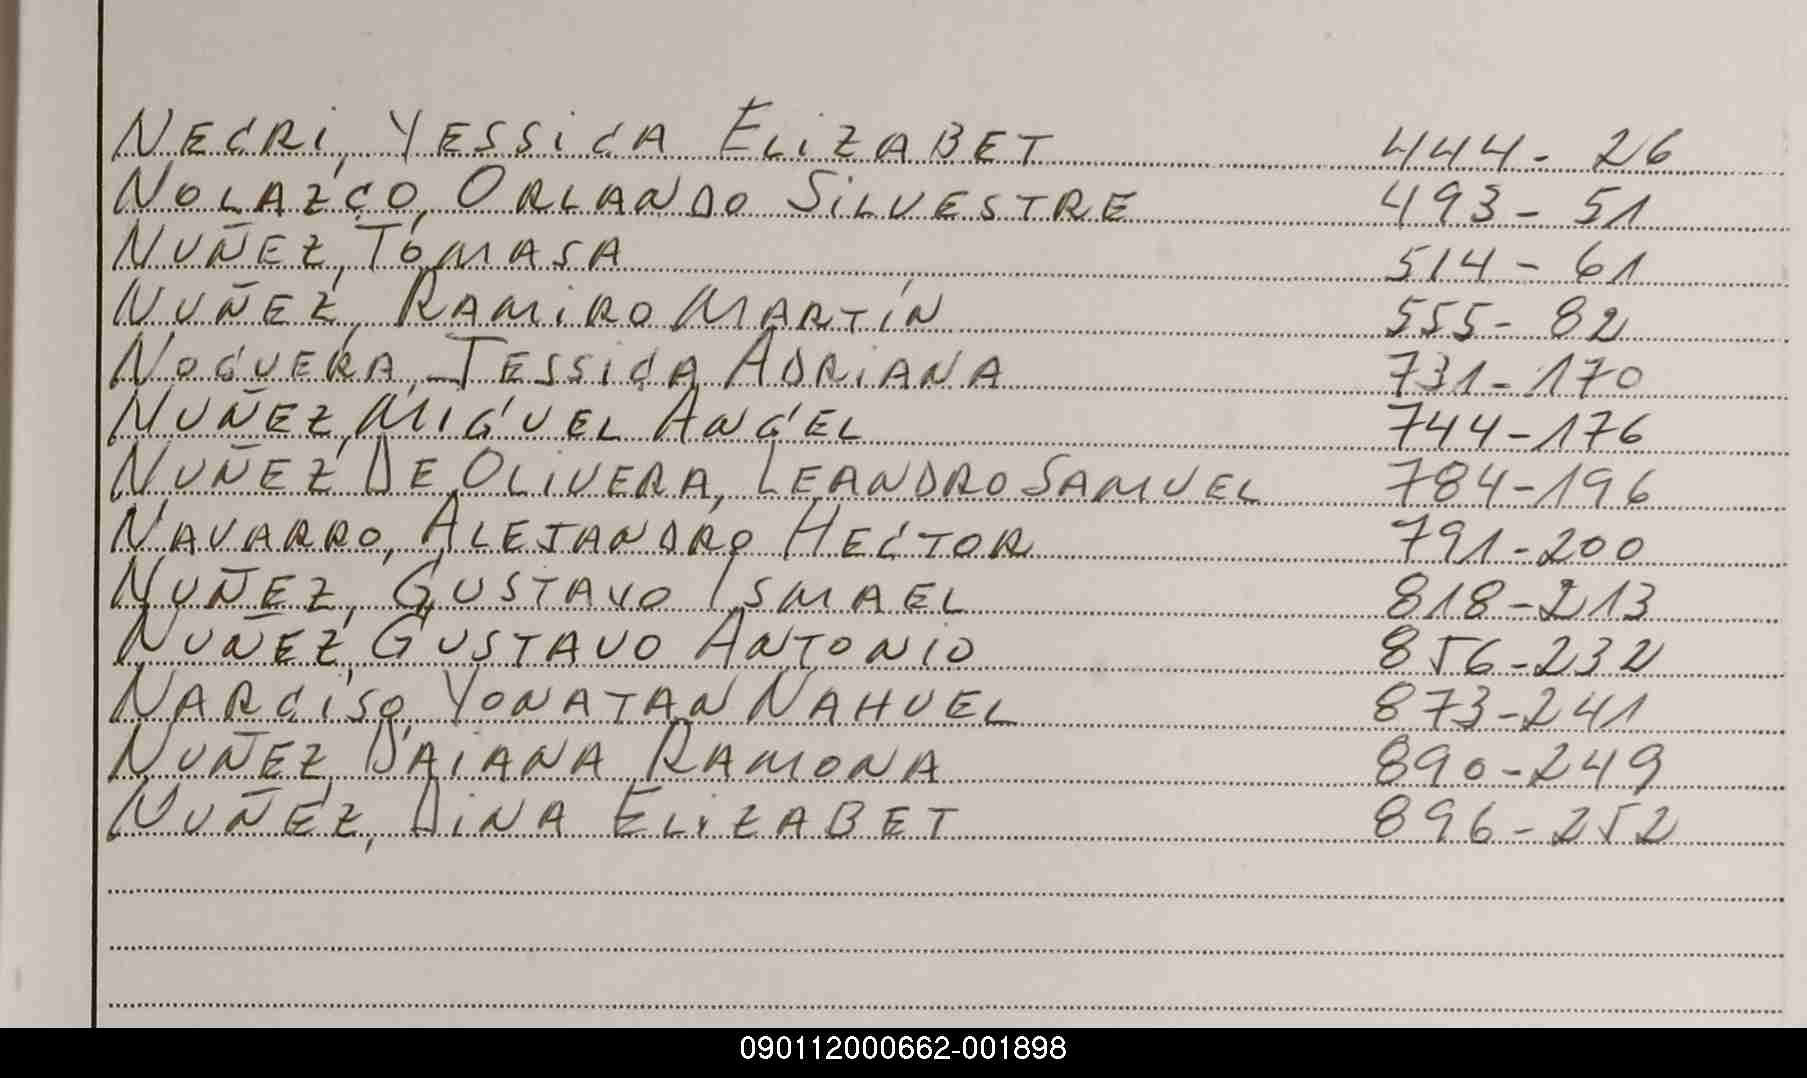 NECRI, YESSICA ELIZABET 444- 26
NOLAZCO, ORLANDO SILVESTRE 493- 51
NUÑEZ, TOMASA 514- 61
NUÑEZ, RAMIRO MARTÍN 555- 82
NOGUERA, JESSICA ADRIANA 731-170
NUÑEZ, MIGUEL ANGEL 744-176
NUÑEZ DE OLIVERA, LEANDRO SAMUEL 784-196
NAVARRO, ALEJANDRO HECTOR 791-200
NUÑEZ, GUSTAVO ISMAEL 818-213
NUÑEZ, GUSTAVO ANTONIO 856-232
NARCISO, YONATAN NAHUEL 873-241
NUÑEZ, DAIANA RAMONA 890-249
NUÑEZ, DINA ELIZABET 896-252
090112000662-001898